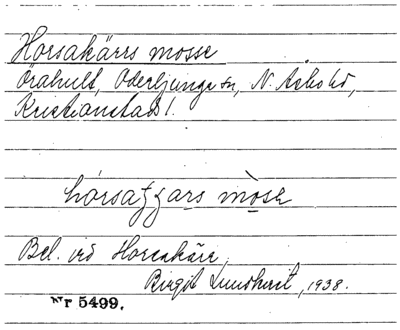 Horsakärrs mosse
Örahult, Oderljunga sn, N. Åsbo hd,
Kristianstads l.
hórsaʒʒars mòsɛ
Bel. vid Horsakärr,
Birgit Lundkvist, 1938.
Nr 5499.